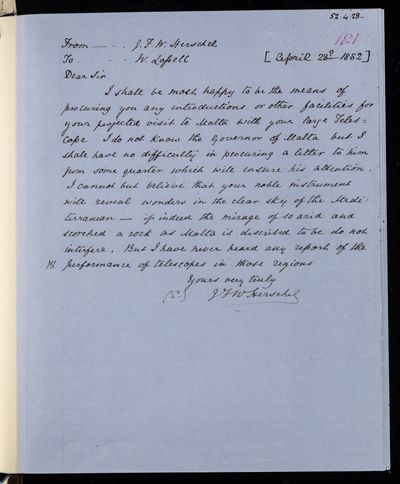 52.4.28-
181
From — . J.F.W. Herschel
To . . . W. Lassell [April 28th 1852]
Dear Sir
I shall be most happy to be the means of
procuring you any introductions or other facilities for
your projected visit to Malta with your large Teles=
cope I do not know the Governor of Malta but I
shall have no difficulty in procuring a letter to him
from some quarter which will ensure his attention.
I cannot but believe that your noble instrument
will reveal wonders in the clear sky of the Medi=
terranean — if indeed the mirage of so arid and
scorched a rock as Malta is described to be do not
interfere. But I have never heard any report of the
performance of telescopes in those regions
Yours very truly
J F W Herschel